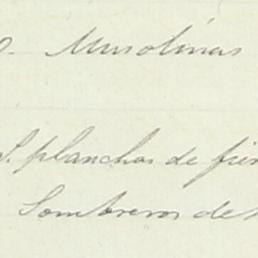 Muselinas
S. planchas de fier
Sombreros de